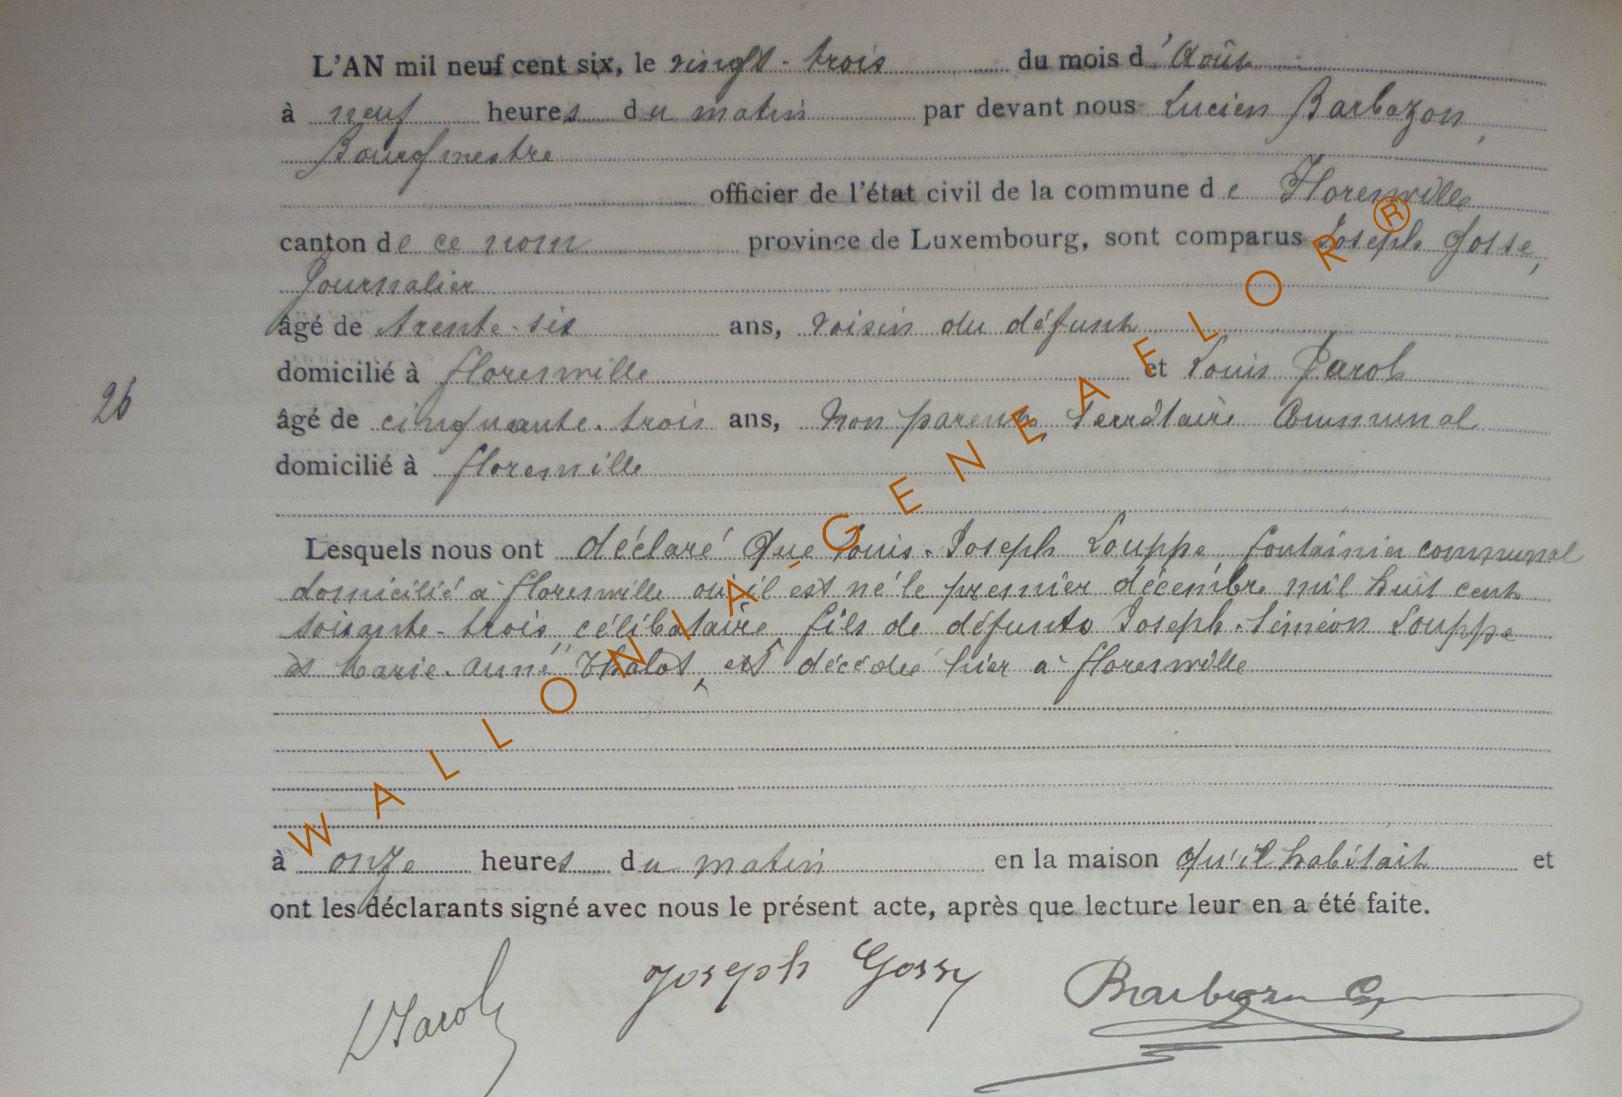 L'AN mil neuf cent six, le vingt-trois du mois d'Août
à neuf heures du matin par devant nous Lucien Barbazon,
Bourgmestre
officier de l'état civil de la commune de Florenville
canton de ce nom province de Luxembourg, sont comparus Joseph Gosse,
Journalier
âgé de trente-six ans, voisin du défunt
domicilié à florenville et Louis Jarol
26
âgé de cinquante-trois ans, non parent Secrétaire Communal
domicilié à florenville
Lesquels nous ont déclaré Que Louis-Joseph Louppe, fontainier communal
domicilié à florenville où il est né le premier décembre mil huit cent
soixante-trois, célibataire, fils de défunts Joseph-Siméon Louppe
et Marie-Anne Thalot, est décédé hier à florenville
à onze heures du matin en la maison qu'il habitait et
ont les déclarants signé avec nous le présent acte, après que lecture leur en a été faite.
LJarol Joseph Gossy Barbazon
WALLONIA-GENEAFLOR®